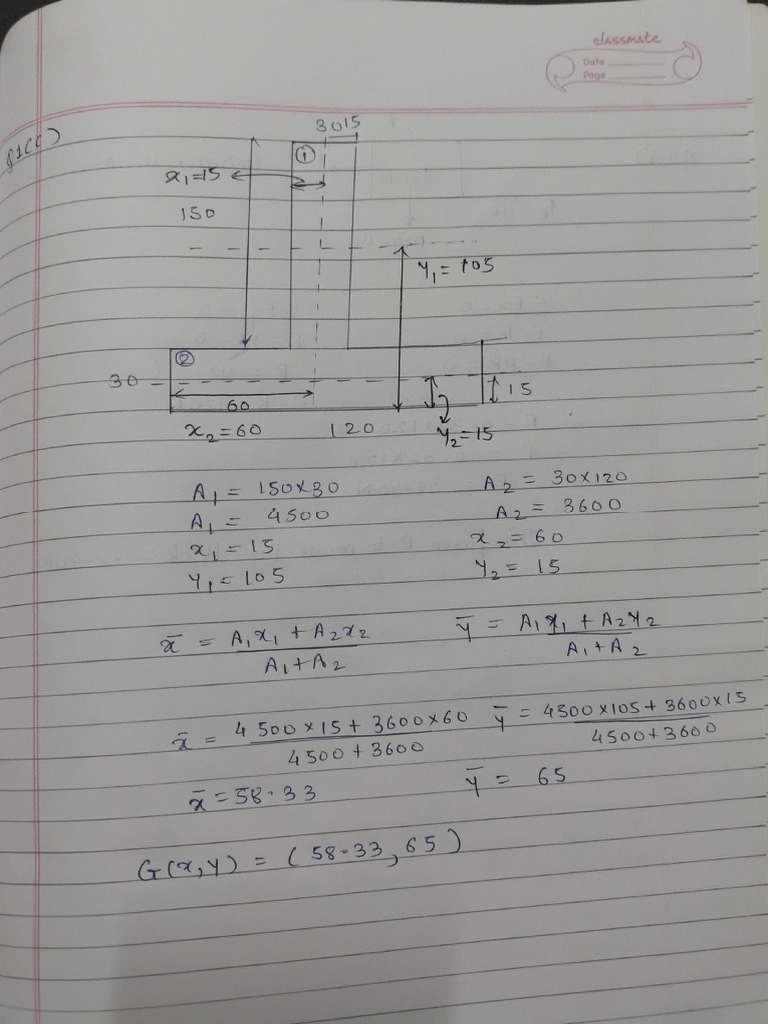 classmate
Date
Page
Q1(c)
30 15
①
x₁=15
150
Y₁ = 105
②
30
15
60
x₂=60 120 Y₂=15
A₁ = 150×30 A₂ = 30×120
A₁ = 4500 A₂ = 3600
x₁ = 15 x₂ = 60
Y₁ = 105 Y₂ = 15
x̄ = A₁x₁ + A₂x₂ / A₁+A₂ ȳ = A₁Y₁ + A₂Y₂ / A₁+A₂
x̄ = 4500×15 + 3600×60 / 4500+3600 ȳ = 4500×105 + 3600×15 / 4500+3600
x̄ = 58.33 ȳ = 65
G(x,y) = (58.33, 65)